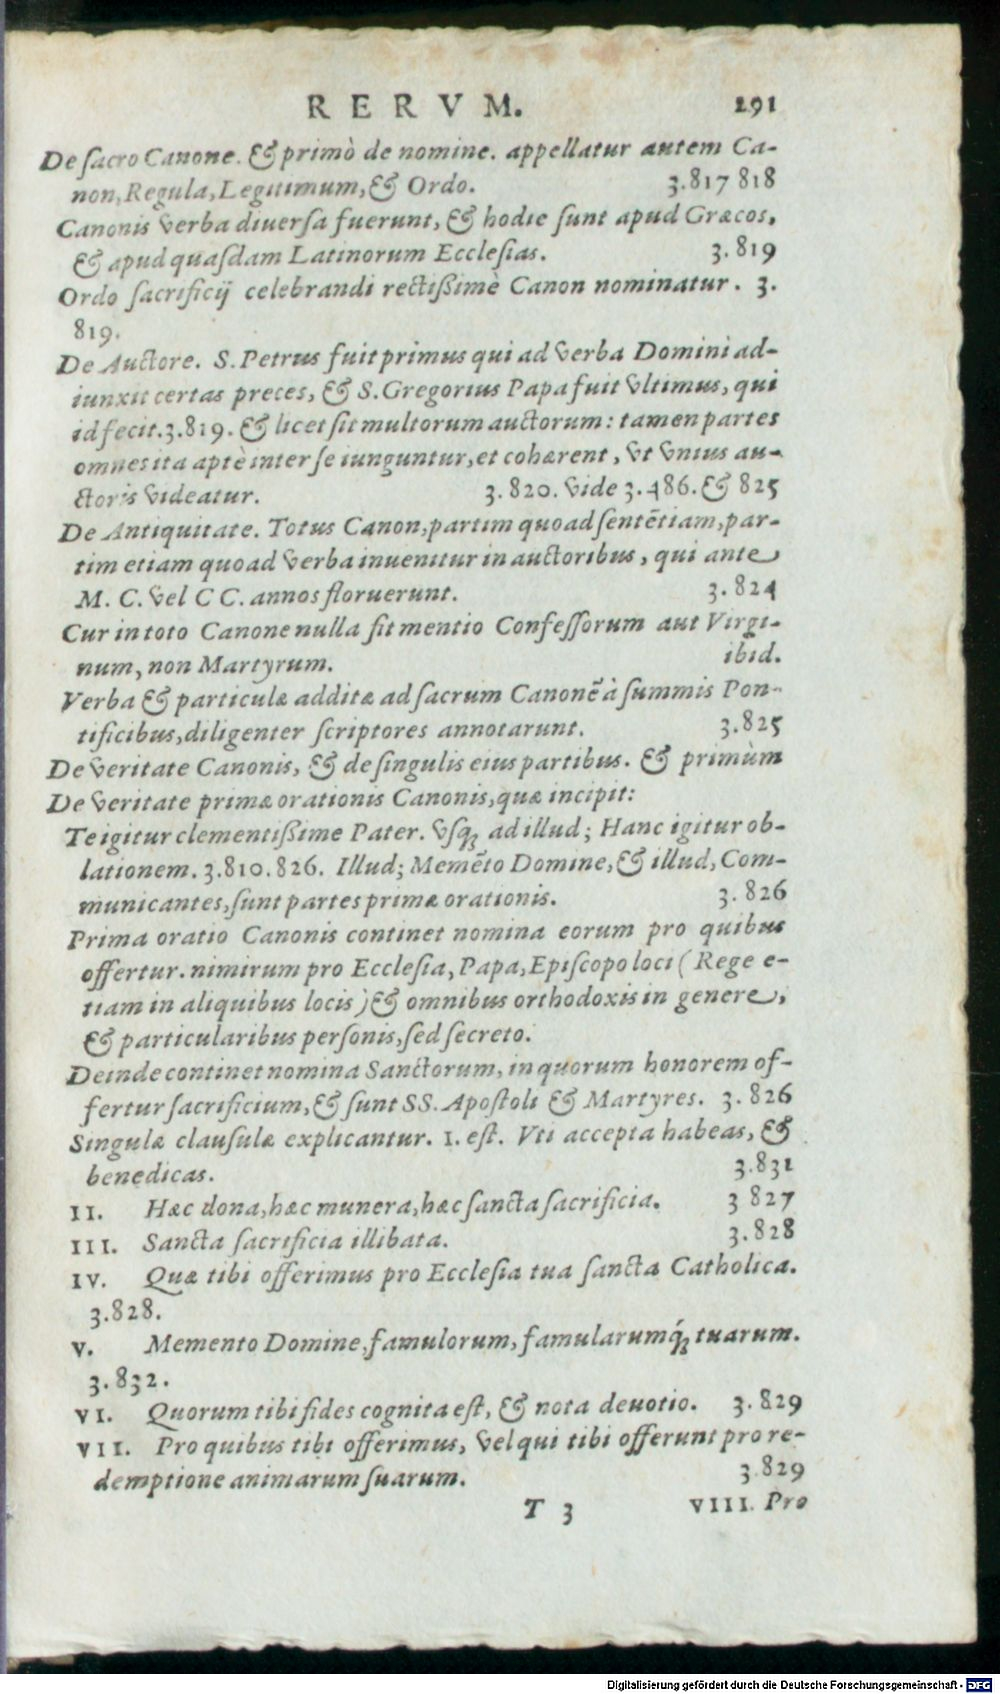 RERVM. 291
De sacro Canone. & primò de nomine. appellatur autem Ca-
non, Regula, Legitimum, & Ordo. 3.817 818
Canonis verba diuersa fuerunt, & hodie sunt apud Græcos,
& apud quasdam Latinorum Ecclesias. 3.819
Ordo sacrificij celebrandi rectißimè Canon nominatur. 3.
819.
De Auctore. S. Petrus fuit primus qui ad verba Domini ad-
iunxit certas preces, & S. Gregorius Papa fuit vltimus, qui
id fecit. 3.819. & licet sit multorum auctorum: tamen partes
omnes ita aptè inter se iunguntur, et cohærent, vt vnius au-
ctoris videatur. 3.820. vide 3.486. & 825
De Antiquitate. Totus Canon, partim quoad sentētiam, par-
tim etiam quoad verba inuenitur in auctoribus, qui ante
M. C. vel CC. annos floruerunt. 3.824
Cur in toto Canone nulla fit mentio Confessorum aut Virgi-
num, non Martyrum. ibid.
Verba & particulæ additæ ad sacrum Canonē à summis Pon-
tificibus, diligenter scriptores annotarunt. 3.825
De veritate Canonis, & de singulis eius partibus. & primùm
De veritate primæ orationis Canonis, quæ incipit:
Te igitur clementißime Pater. vsq́; ad illud; Hanc igitur ob-
lationem. 3.810.826. Illud; Memēto Domine, & illud, Com-
municantes, sunt partes primæ orationis. 3.826
Prima oratio Canonis continet nomina eorum pro quibus
offertur. nimirum pro Ecclesia, Papa, Episcopo loci (Rege e-
tiam in aliquibus locis) & omnibus orthodoxis in genere,
& particularibus personis, sed secreto.
Deinde continet nomina Sanctorum, in quorum honorem of-
fertur sacrificium, & sunt SS. Apostoli & Martyres. 3.826
Singulæ clausulæ explicantur. I. est. Vti accepta habeas, &
benedicas. 3.831
II. Hæc dona, hæc munera, hæc sancta sacrificia. 3 827
III. Sancta sacrificia illibata. 3.828
IV. Quæ tibi offerimus pro Ecclesia tua sancta Catholica.
3.828.
V. Memento Domine, famulorum, famularumq́; tuarum.
3.832.
VI. Quorum tibi fides cognita est, & nota deuotio. 3.829
VII. Pro quibus tibi offerimus, vel qui tibi offerunt pro re-
demptione animarum suarum. 3.829
T 3 VIII. Pro
Digitalisierung gefördert durch die Deutsche Forschungsgemeinschaft - DFG